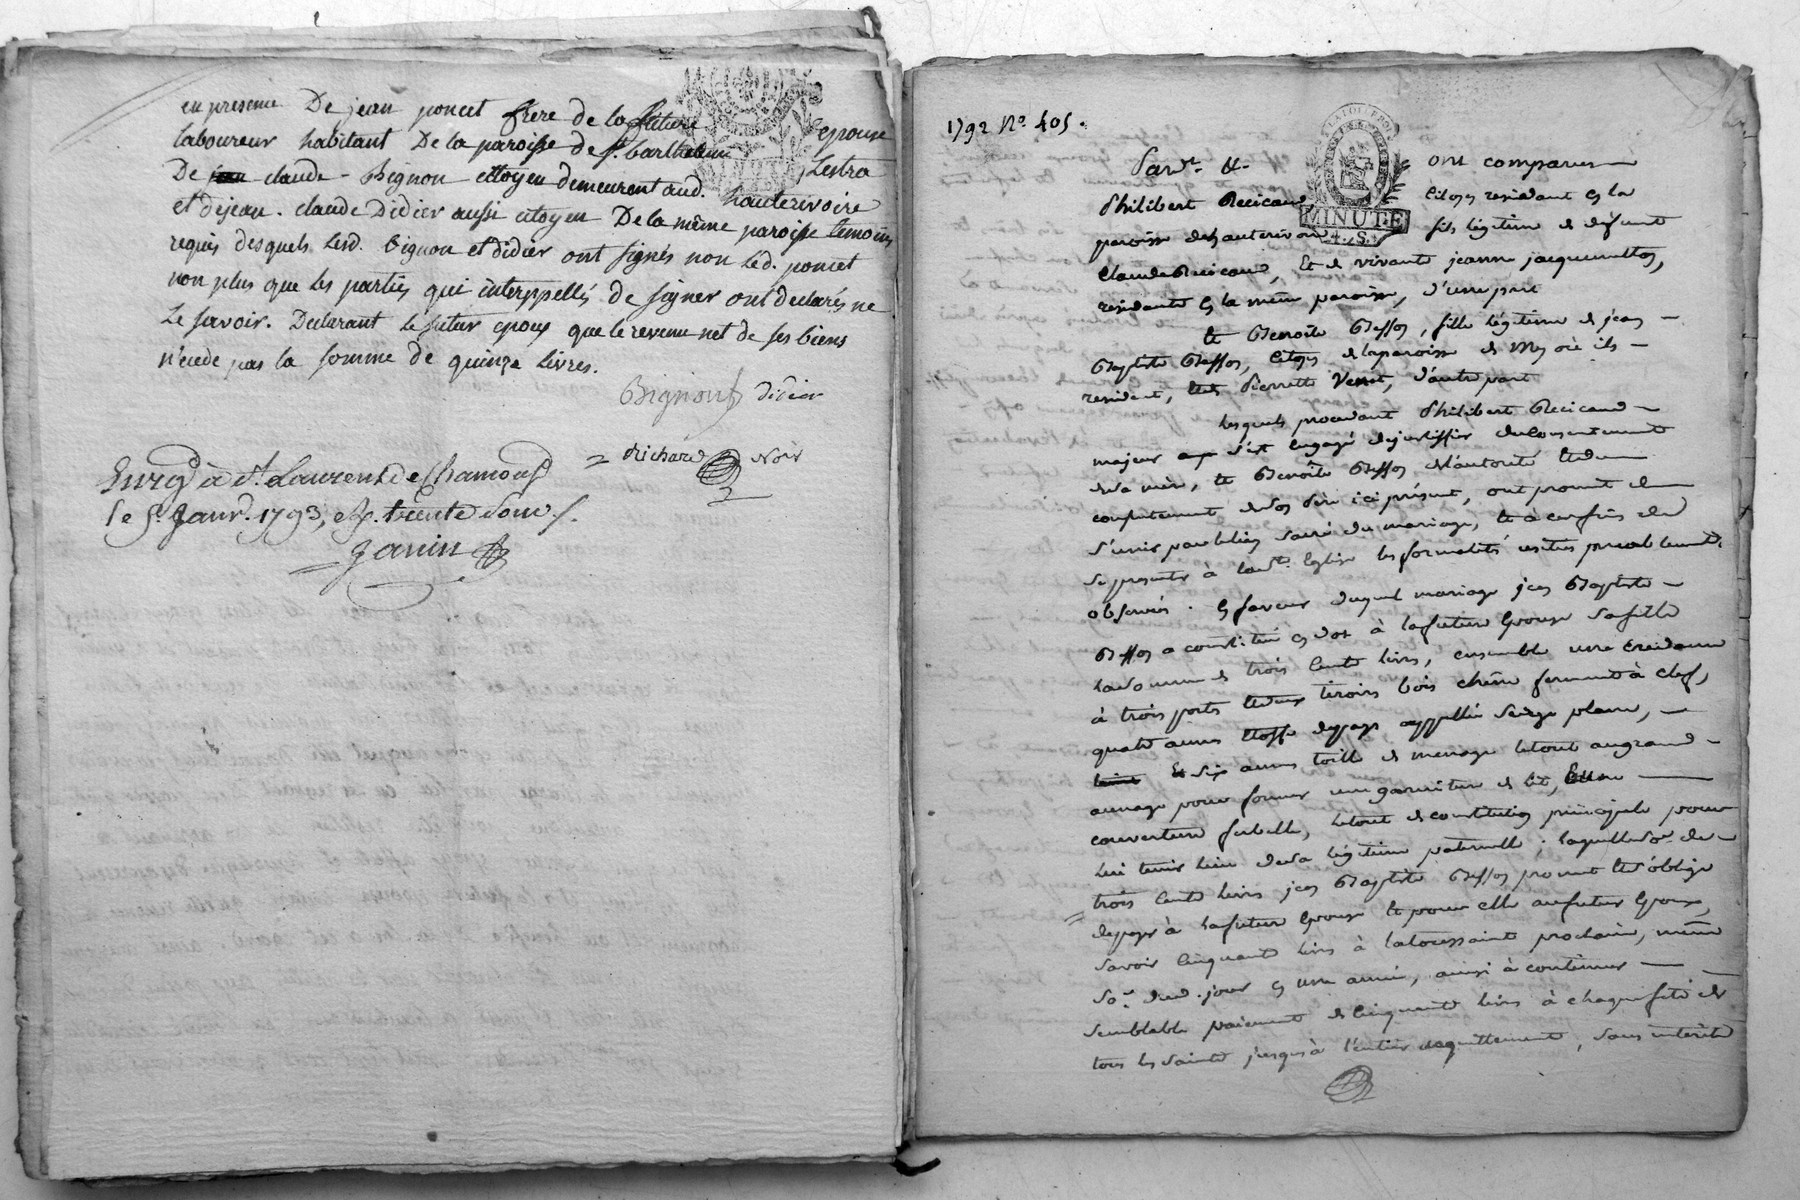 en presence De jean poncet frere de la future epouse
laboureur habitant De la paroisse de St. barthelemi Lestra
De jean claude Bignon citoyen demeurent aud. hauterivoire
et dejean. claude Didier aussi citoyen De la même paroisse temoins
requis desquels Lesd. bignon et didier ont signés non Led. poncet
non plus que les parties qui interppellés de signer ont declarés ne
Le savoir. Declarant le futur epoux que le revenu net de ses biens
n'exede pas la somme de quinze livres.
Bignon Didier
= Richard Noir
Enregé à St. Laurent de Chamousst
le 5. Janv. 1793, rec. trente sous.
Janin
1792 No. 405.
MINUTE
4. S.
Pard.t &. ont comparu
Philibert Recicaud, citoyen residant en la
paroisse de hauterivoire fils légitime de defunt
Claude Recicaud, Et de vivante jeanne jacquemetton,
residante en la même paroisse, d'une part
Et Benoîte Besson, fille légitime de jean
Baptiste Besson, citoyen de la paroisse de Mey où ils
resident, Et de Pierrette Venet, d'autre part
lesquels procedant Philibert Recicaud
majeur s'est engagé de justiffier du consentement
de sa mère, et Benoîte Besson de l'autorité et du
consentement de son père ici présent, ont promit de
s'unir par le lien sacré du mariage, et à ces fins de
se presenter à lad.te Eglise les formalités usitées prealablement
observées. En faveur duquel mariage jean Baptiste
Besson a constitué en dot à la future Epouse sa fille
la somme de trois cents livres, ensemble une
à trois portes et deux tiroirs bois chêne fermant à clef,
quatre aunes étoffe du pays appellée Serge
Et six aunes toille de menage le tout au grand
aunage pour former une garniture de lit, Et une
couverture, le tout de constitution principale pour
lui tenir lieu de sa légitime paternelle; laquelle so.e de
trois cents livres jean Baptiste Besson promet et s'oblige
de payer à la future Epouse et pour elle au futur Epoux,
savoir cinquante livres à la toussaint prochaine, même
so.e dud. jour en une année, ainsi à continuer
semblable paiement de cinquante livres à chaque fête de
tous les saints jusqu'à l'entier acquittement, sans intérêts